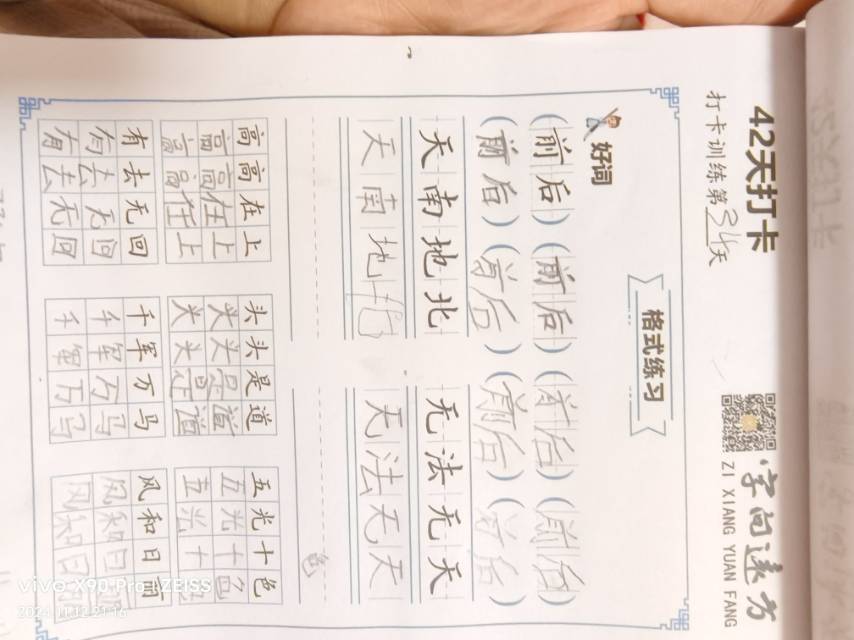 42天打卡
打卡训练第34天
字向远方
ZI XIANG YUAN FANG
格式练习
好词
(前后)(前后)(前后)(前后)
(前后)(前后)(前后)(前后)
天南地北 无法无天
天南地北 无法无天
色
高高在上 头头是道 五光十色
高高在上 头头是道 五光十色
高高在上 头头是道 五光十色
有去无回 千军万马 风和日丽
有去无回 千军万马 风和日丽
有去无回 千军万马 风和日
vivo X90 Pro | ZEISS
2024.11.12 21:16